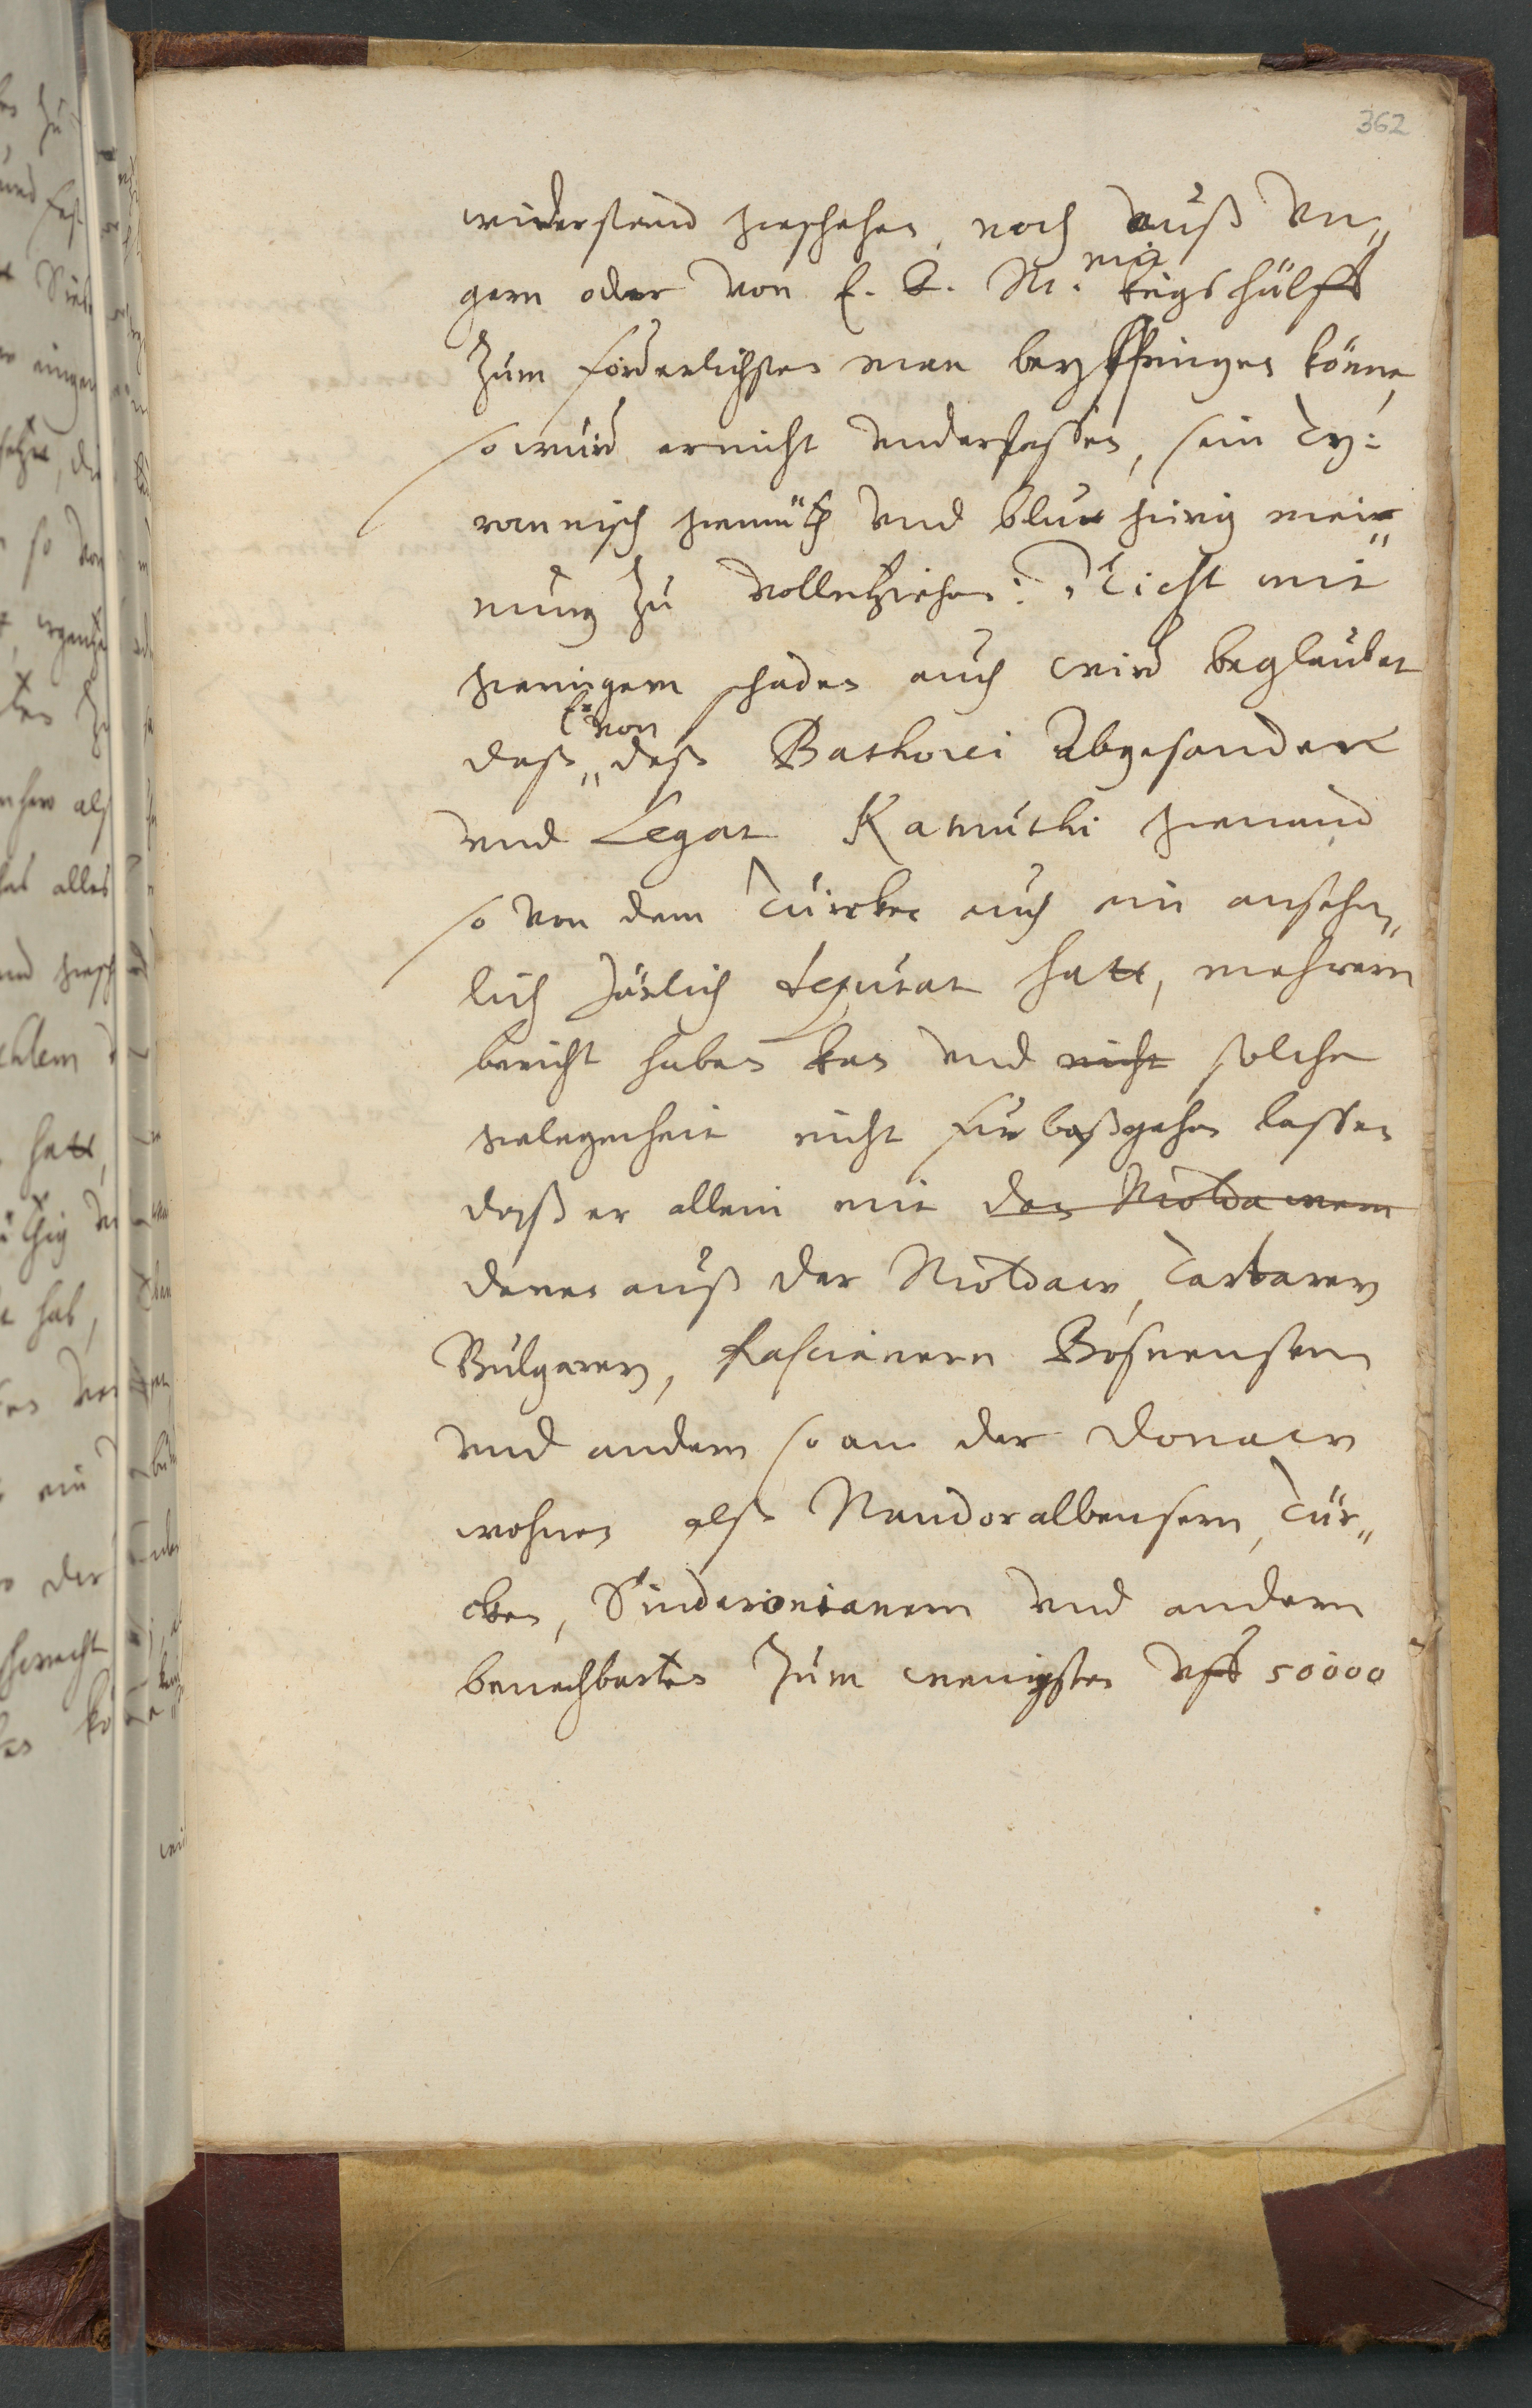 362
widerstand geschehen, noch auß Vn„
gern oder von E. K. M. mit kriegs hülff
Zum förderlichsten man beyspringen könne,
so würd er nicht vnderlassen, sein Ty:
rannisch gemüth vnd blutgirig mei„
nung zu vollntziehen: Nicht mit
geringerm schaden auch wird beglaubet
daß„ Er von deß Bathorei Abgesander
vnd Legat Kamuthi genand
so von dem Türcken auch ein ansehn„
lich Järlich deputat hatt, mehrern
bericht haben kan vnd nicht solche
gelegenheit nicht fürbaßgehen lassen
daß er allein mit den Moldawern
denen auß der Moldaw, Tartarey
Bulgarey, Rascianern Bosnensern
vnd andern so an der Donaw
wohnen alß Nandoralbensern, Tür„
cken, Sinderonianern vnd andern
benachbarten Zum wenigsten vff 50000